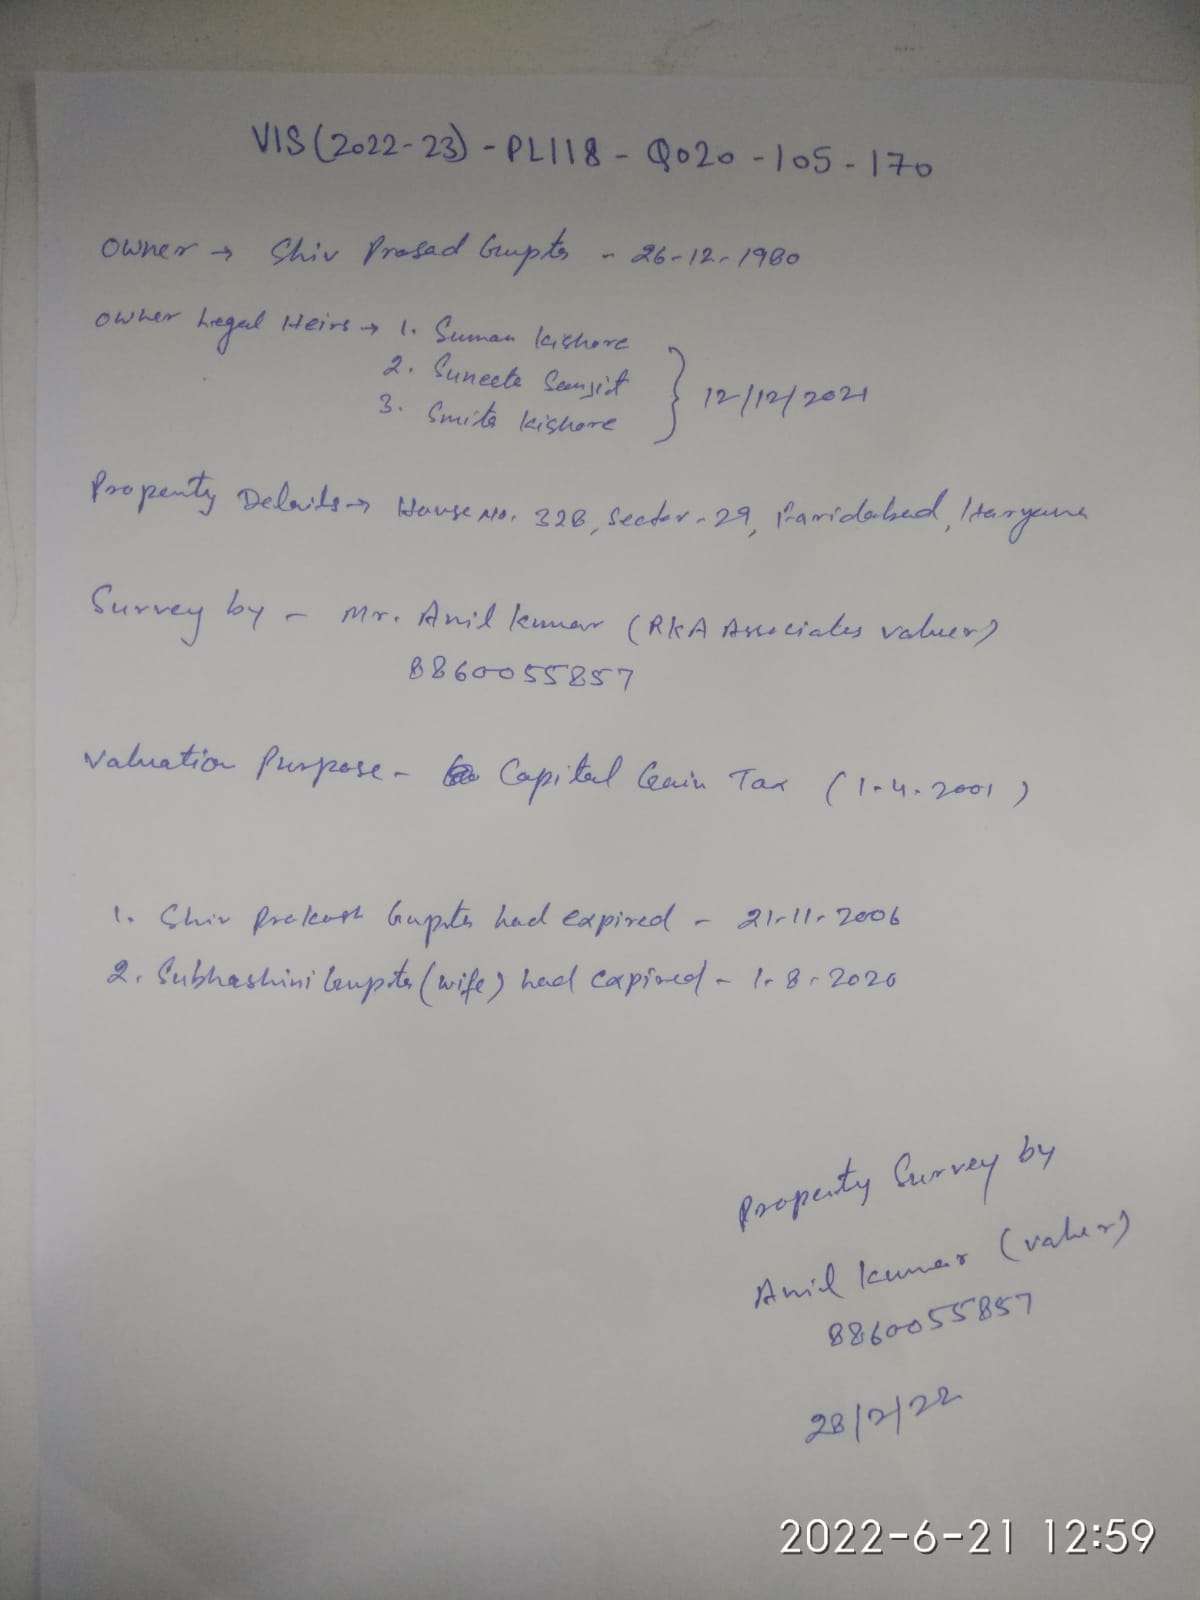 VIS (2022-23) - PL118 - Q020 - 105 - 170
Owner → Shiv Prasad Gupta - 26-12-1980
Owner Legal Heirs → 1. Suman Kishore
2. Suneeta Sanjit
3. Smita Kishore
} 12/12/2021
Property Details → House No. 328, Sector-29, Faridabad, Haryana
Survey by - Mr. Anil Kumar (RKA Associates valuer)
8860055857
Valuation Purpose - Capital Gain Tax (1.4.2001)
1. Shiv Prakash Gupta had expired - 21.11.2006
2. Subhashini Gupta (wife) had expired - 1.8.2020
Property Survey by
Anil Kumar (valuer)
8860055857
28/2/22
2022-6-21 12:59